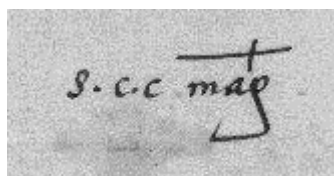 S. C. C map